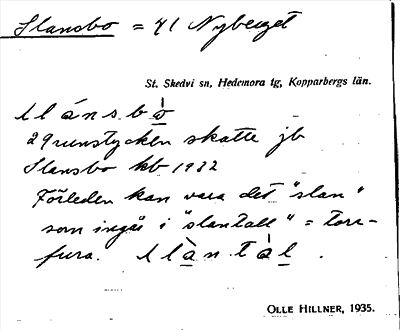 Slansbo = 41 Nyberget
St. Skedvi sn, Hedemora tg, Kopparbergs län.
slánsbò
2 9runstycken skatte jb
Slansbo kb 1932
Förleden kan vara det "slan"
som ingår i "slantall" = torr-
fura. slàn.tàl.
OLLE HILLNER, 1935.